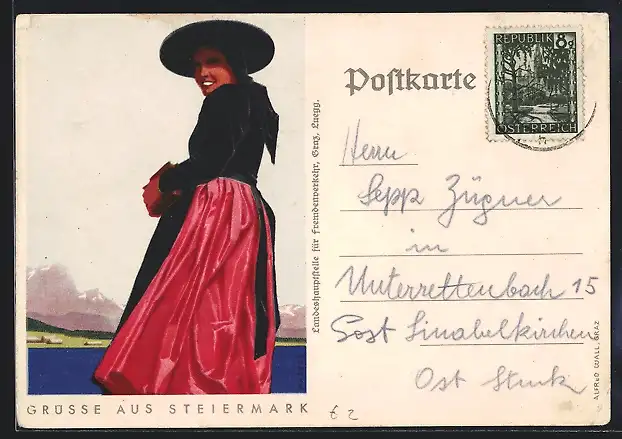 Postkarte
REPUBLIK 8g
ÖSTERREICH
Herrn
Sepp Zügner
in
Unterrettenbach 15
Post Sinabelkirchen
Ost Steierm.
Landeshauptstelle für Fremdenverkehr, Graz, Luegg.
ALFRED WALL, GRAZ
GRÜSSE AUS STEIERMARK
62